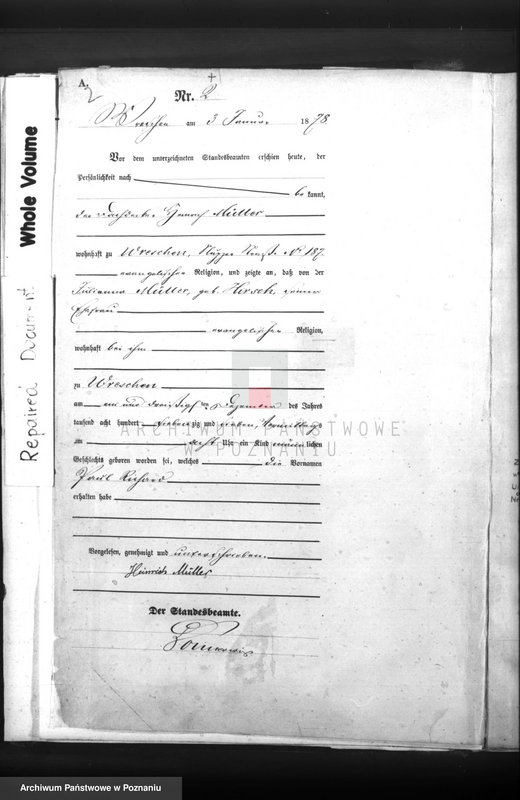 A.
2
Nr. 2
Wreschen am 3 Januar 1878
Vor dem unterzeichneten Standesbeamten erschien heute, der
Persönlichkeit nach
be kannt,
der Dachdecker Heinrich Müller
wohnhaft zu Wreschen, No 187
evangelischer Religion, und zeigte an, daß von der
Julianna Müller, geb. Hirsch, seiner
Ehefrau
evangelischer Religion,
wohnhaft bei ihm
zu Wreschen
am ein und dreißigsten Dezember des Jahres
tausend acht hundert siebenzig und sieben, Vormittags
um acht Uhr ein Kind männlichen
Geschlechts geboren worden sei, welches die Vornamen
Paul Richard
erhalten habe
Vorgelesen, genehmigt und unterschrieben.
Heinrich Müller
Der Standesbeamte.
Whole Volume
Repaired Document
ARCHIWUM PAŃSTWOWE
W POZNANIU
Archiwum Państwowe w Poznaniu